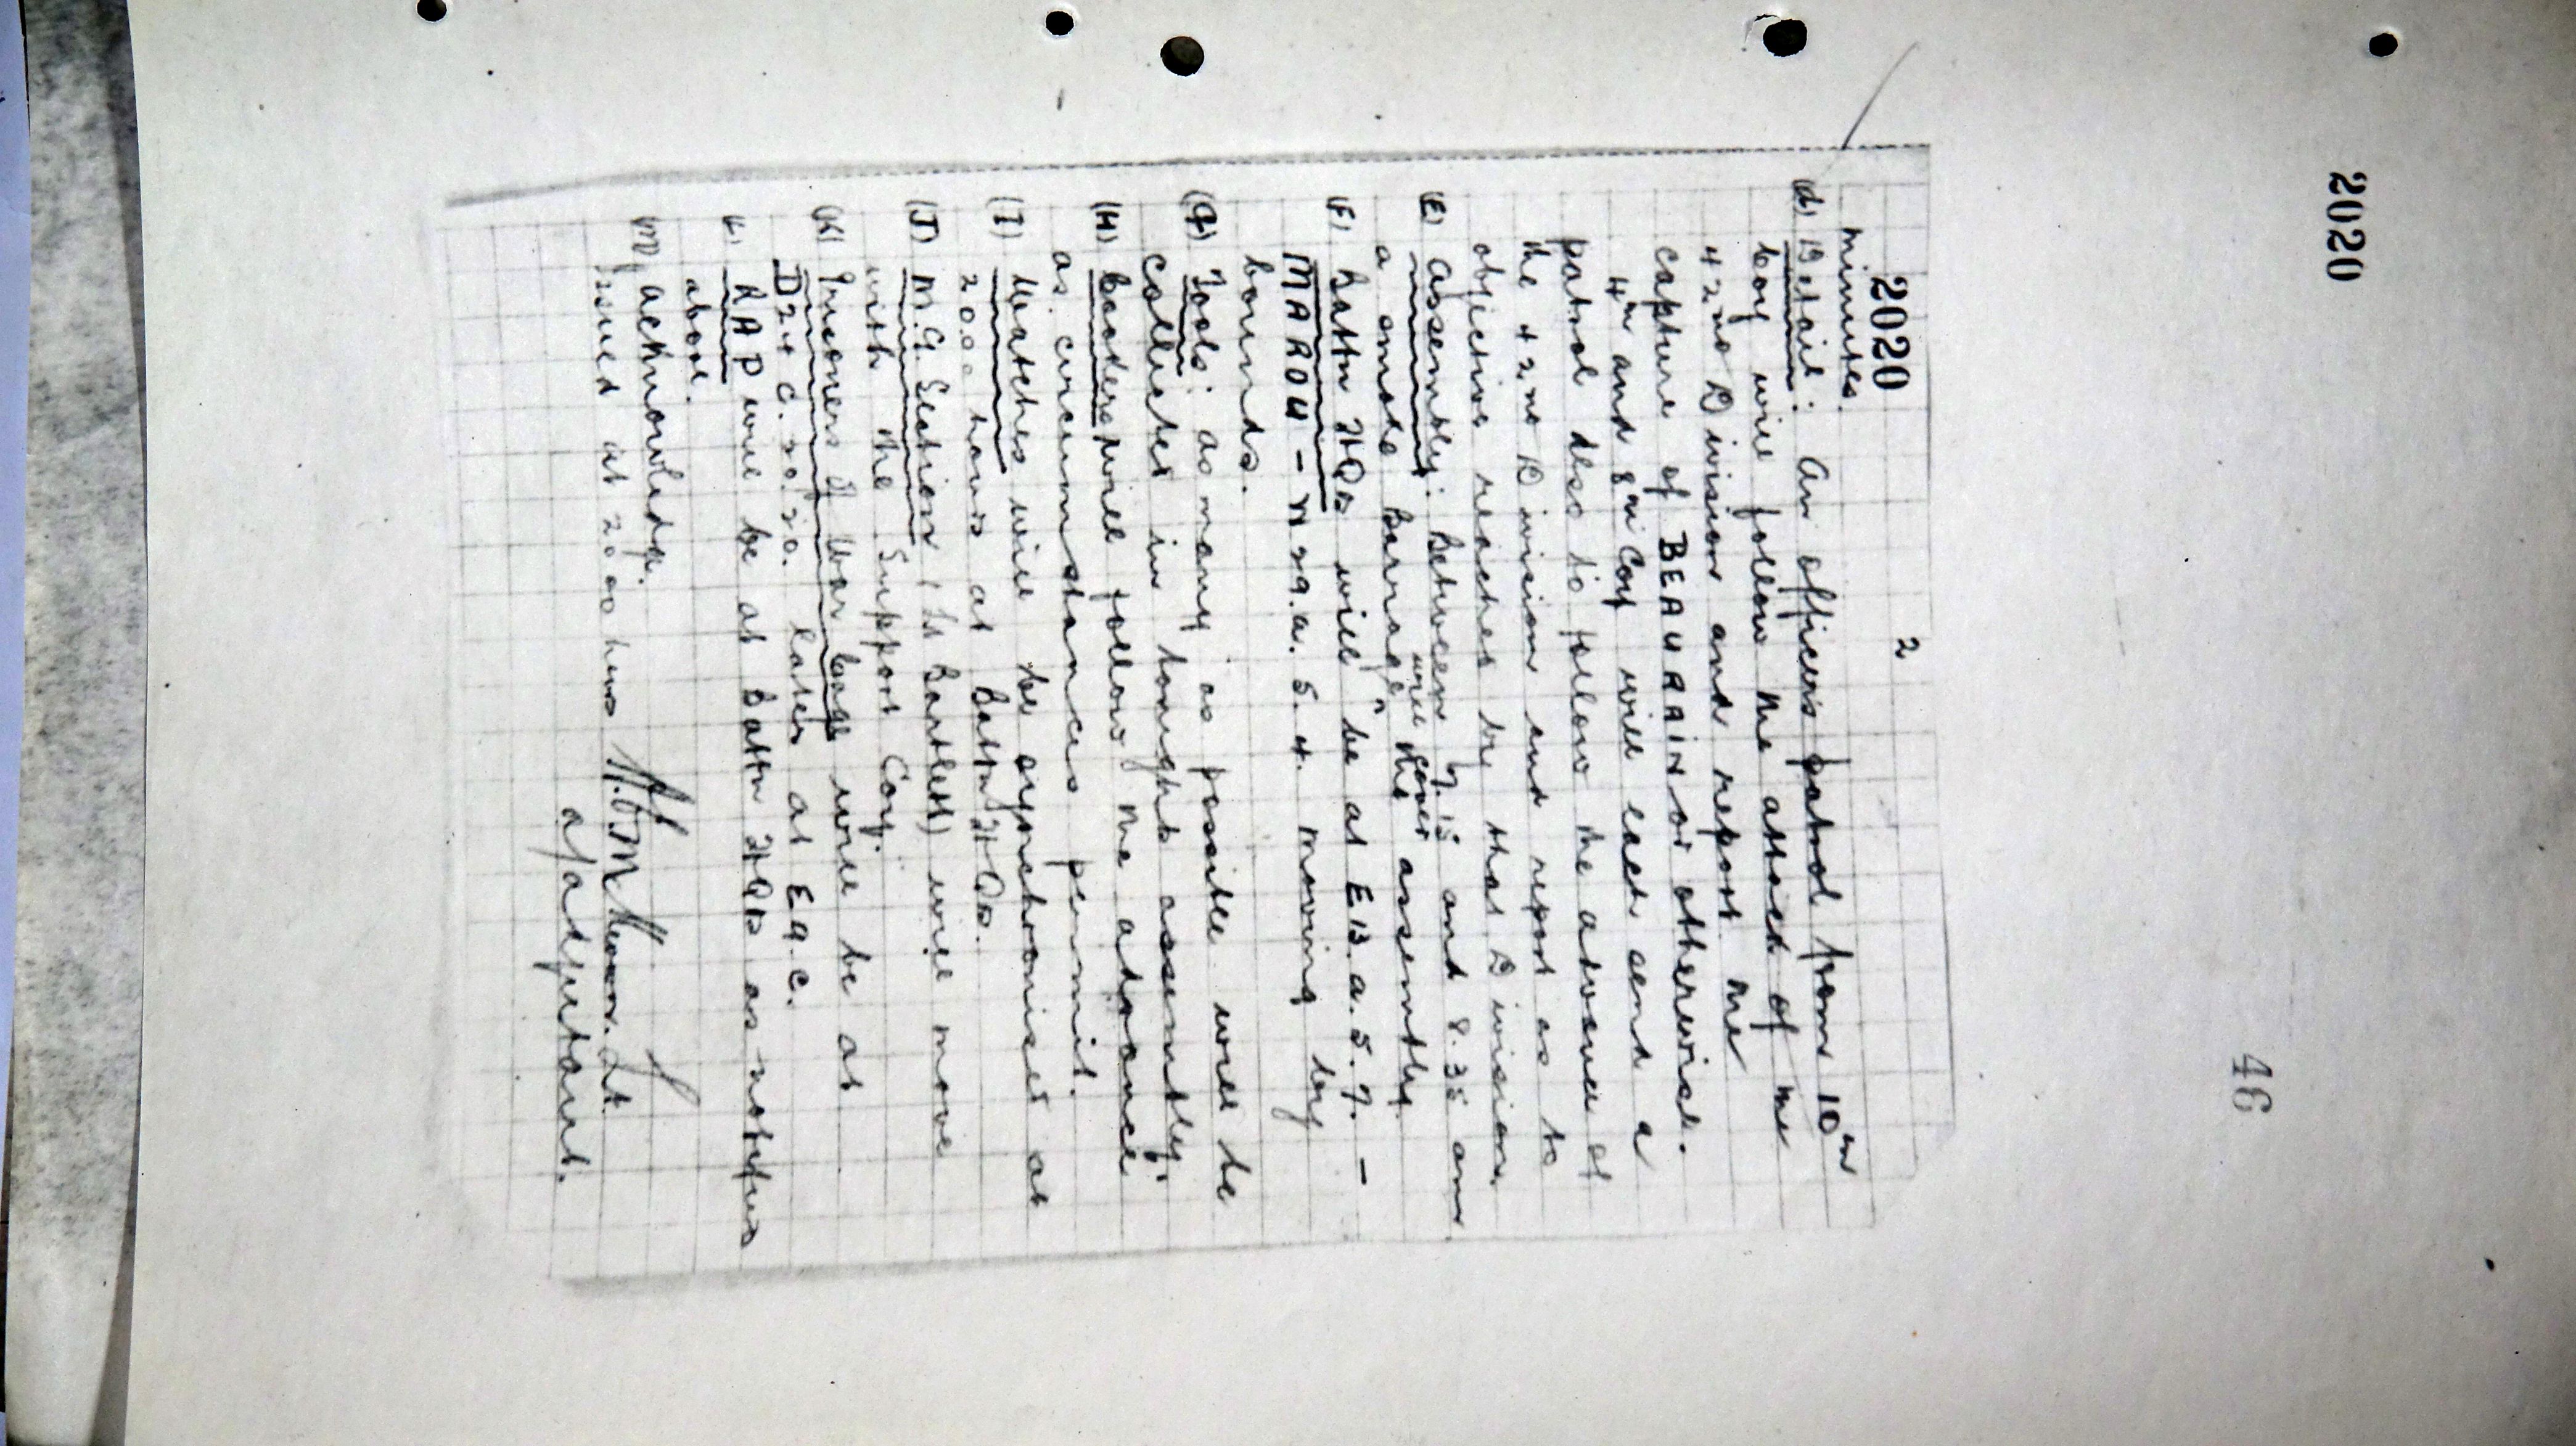 2020
46
2020
2
minutes.
(d) Detail: An officers patrol from 10th
Coy will follow the attack of the
42nd Division and report the
capture of BEAURAIN or otherwise.
4th and 8th Coy will each send a
patrol also to follow the advance of
the 42nd Division and report as to
objective reached by that Division.
(E) Assembly: Between 7.15 and 8.35 am
a smoke Barrage will cover the assembly.
(F) Battn HQrs will be at E13.a.5.7. –
MAROU – N29.a.5.4. moving by
bounds.
(G) Tools: as many as possible will be
collected in tonights assembly.
(H) Cookers will follow the advance
as circumstances permit.
(I) Watches will be synchronised at
20.00 hours at Battn HQrs.
(J) M.G. Section (Lt Bartlett) will move
with the Support Coy.
(K) Prisoners of War Cage will be at
D24 c.20.20. later at E9.c.
(L) RAP will be at Battn HQrs as notified
above.
(M) Acknowledge.
Issued at 2000 hours Lt
a/adjutant.